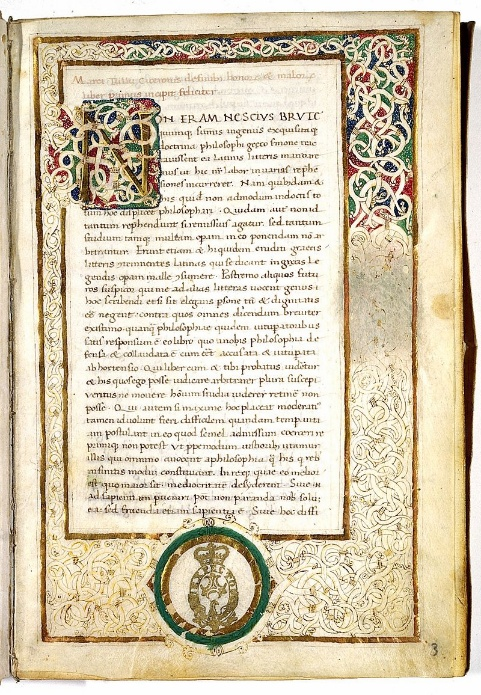 Marci Tullii Ciceronis de finib; bonorȝ & malorȝ
liber primus incipit feliciter
NON ERAM NESCIVS BRVTE
summis ingeniis exquisitaq;
doctrina philosophi greco sermone
latinis litteris
ut hic nr̄ labor in uarias rephē
siones incurreret. Nam quibusdam &
his quid non admodum indoctis to
tum hoc displicet philosophari. Quidam aut̄ non id
tantum rephendunt si remissius agatur. sed tantum
studium tamq; multam opam in eo ponendam nō ar
bitrantur. Erunt etiam & hi quidem eruditi graecis
litteris contemnentes latinas qui se dicant in grecis le
gendis opam malle ↄsumere. Postremo aliquos futu
ros suspicor qui me ad alias litteras uocent genus
hoc scribendi etsi sit elegans psone tn̄ & dignitatis
eē negent. contra quos omnes dicendum breuiter
existimo. quanq̄ philosophiae quidem uituperatoribus
satis responsum ē eo libro quo a nobis philosophia de
fensa & collaudata ē cum eēt accusata & uituperata
ab hortensio. Qui liber cum & tibi probatus uidetur
& his quos ego posse iudicare arbitrarer plura suscepi
ueritus ne mouere hominum studia uiderer retinē non
posse. Qui autem si maxime hoc placeat moderati
tamen id uolunt fieri difficilem quandam tempanti
am postulant in eo quod semel admissum coerceri re
primiq; non potest. Vt ppemodum iustioribus utamur
illis qui omnino auocent a philosophia q̄ his q reb;
infinitis modum constituant. In req; quae eo melior
est quo maior sit mediocritatē desyderent. Siue n̄
ad sapientiam pueniri pōt non paranda nob̄ solū
ea. sed fruenda etiam sapientia ē. Siue hoc diffi
3